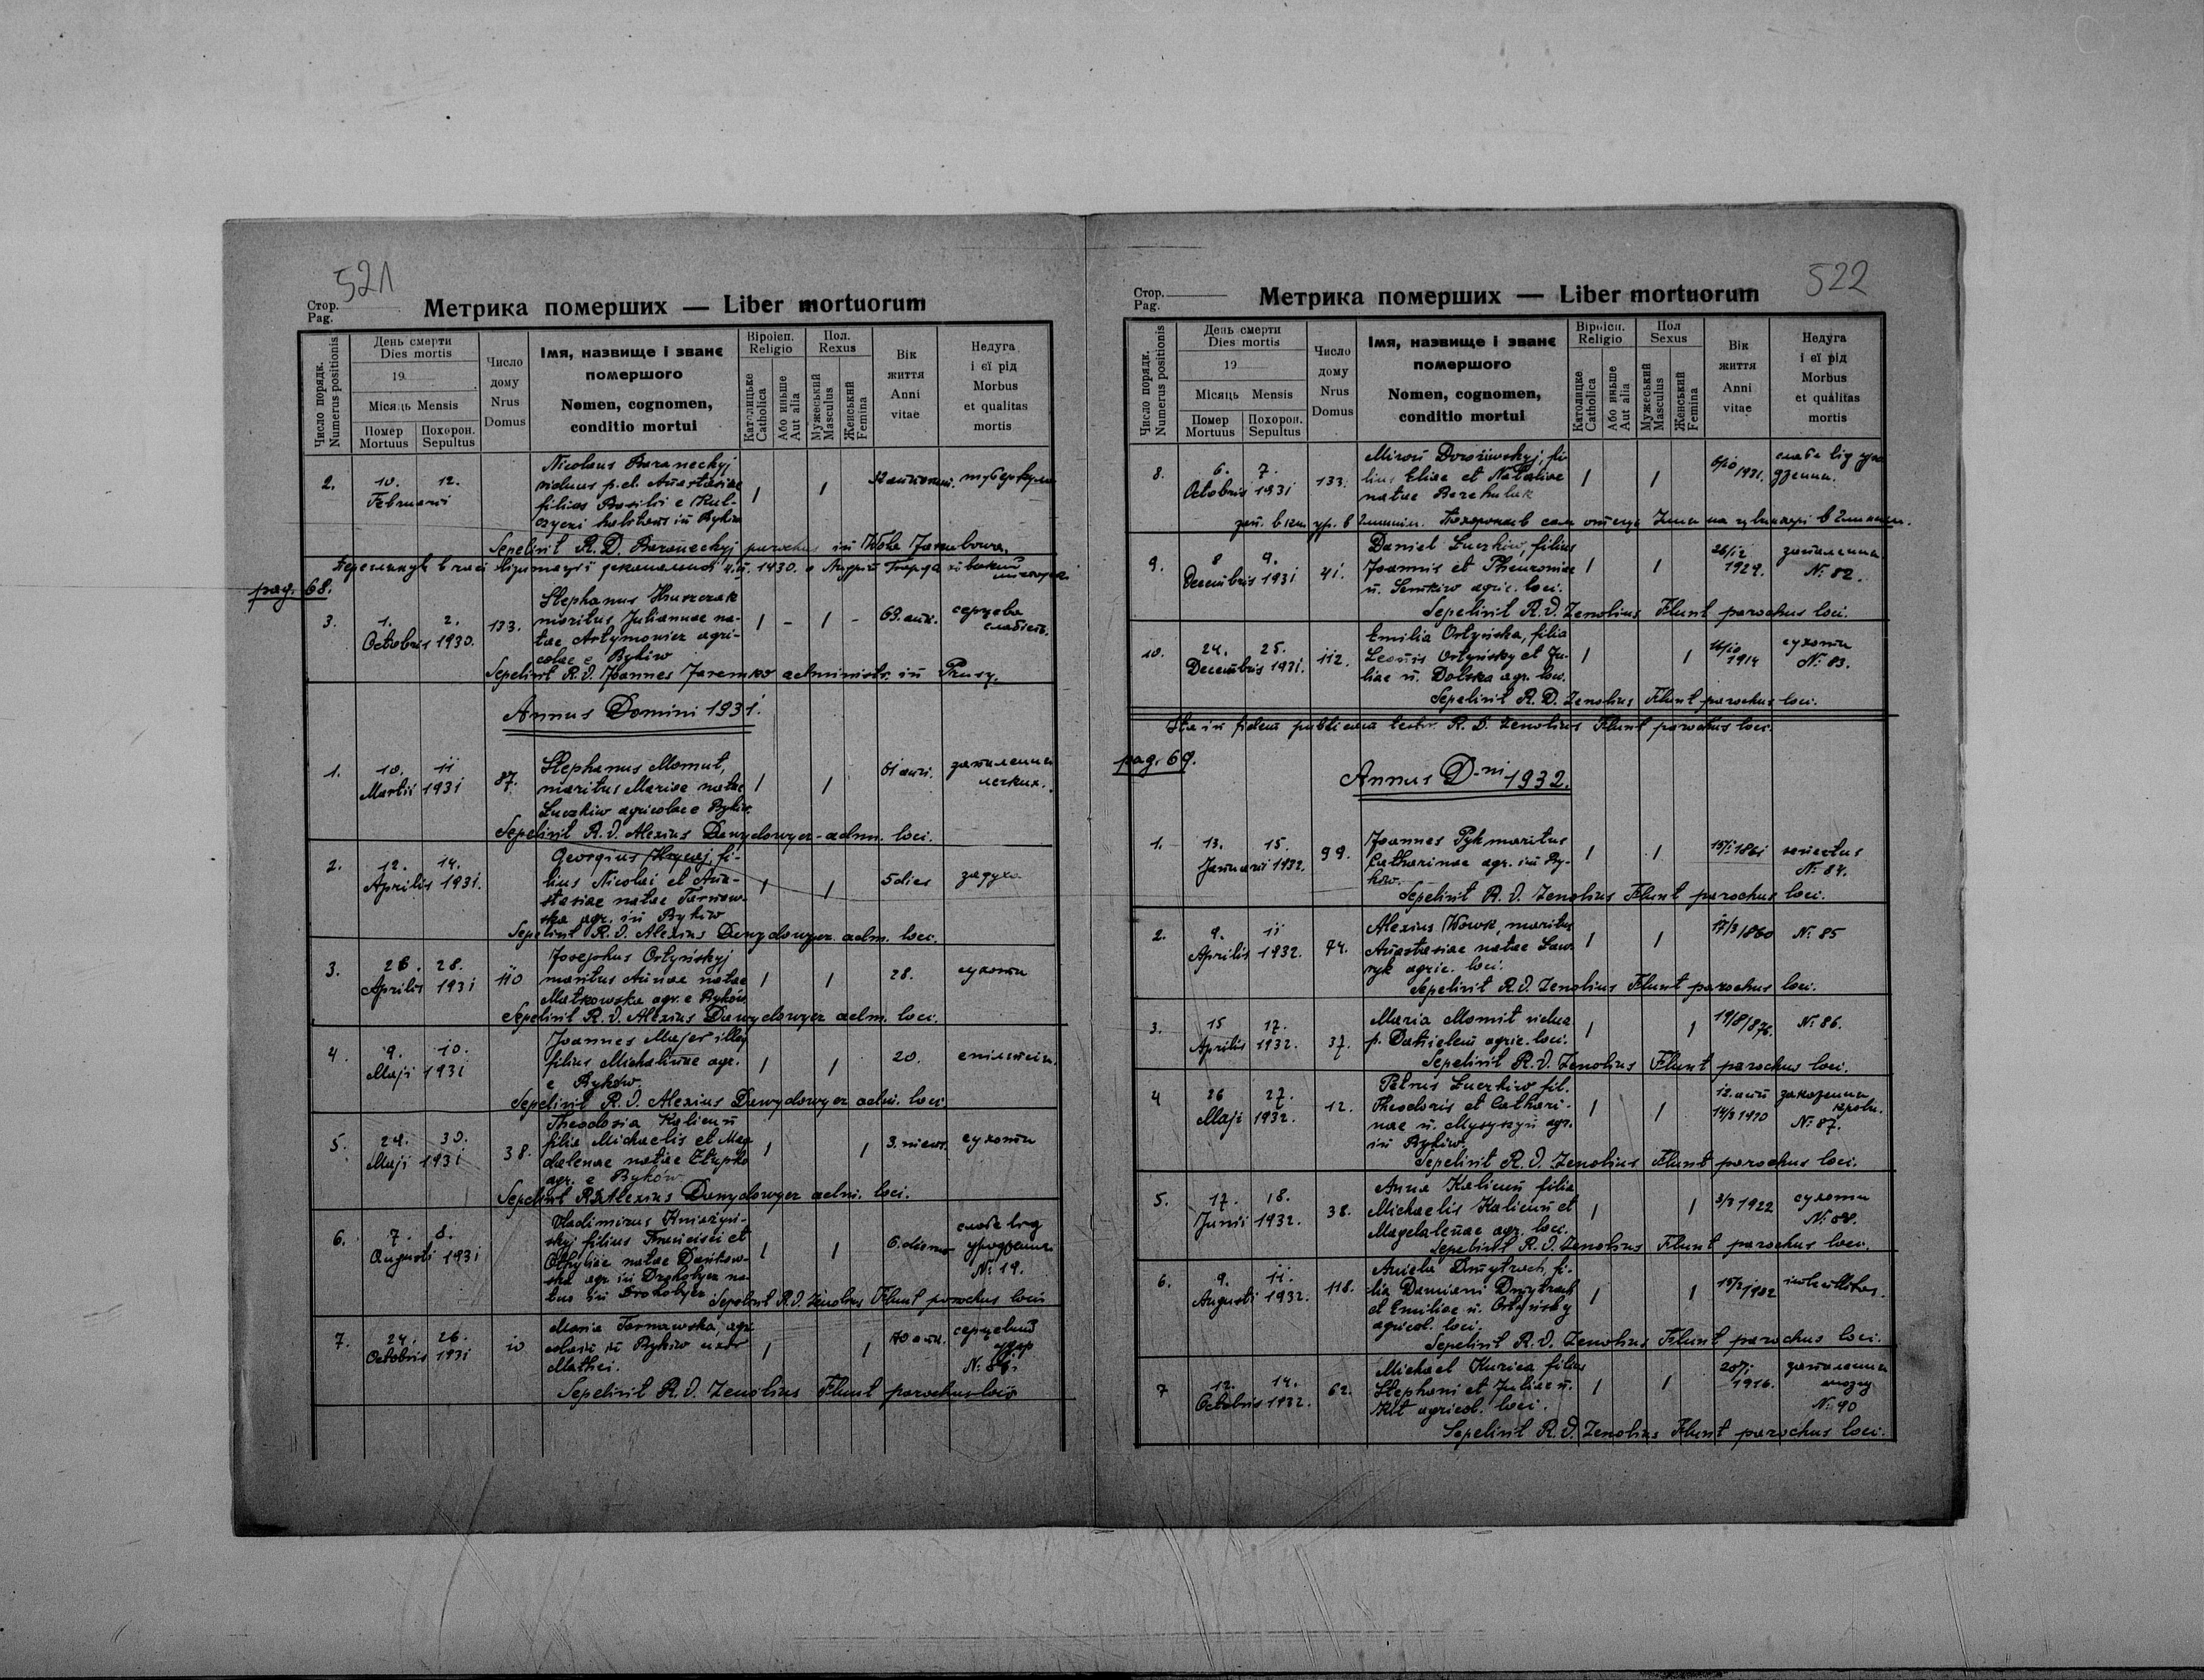 521
Стор.
Pag.
Метрика померших — Liber mortuorum
Число порядк.
Numerus positionis
День смерти
Dies mortis
19
Місяць Mensis
Помер
Mortuus
Похорон.
Sepultus
Число
дому
Nrus
Domus
Імя, назвище і званє
помершого
Nomen, cognomen,
conditio mortui
Віроісп.
Religio
Католицьке
Catholica
Або иньше
Aut alia
Пол.
Rexus
Мужеський
Masculus
Женський
Femina
Вік
життя
Anni
vitae
Недуга
і єї рід
Morbus
et qualitas
mortis
2.
10. 12.
Februarii
Nicolaus Baranechyj
viduus p.d. Anastasiae
filius Basilii e Kul-
czyczi habitans in Bykiw
Sepelivit R. D. Baranechyj parochus in Wola Jakubowa.
pag. 68.
3.
1. 2.
Octobris 1930.
133.
Stephanus
maritus Juliannae na-
tae Artymowicz agri-
colae e Bykiw
1 - 1 -
63. літ.
серцева
слабість.
Sepelivit R. D. Joannes Jaremko administr. in Prusy.
Annus Domini 1931.
1.
10. 11
Martii 1931
87.
Stephanus Momut,
maritus Mariae natae
Łuczkiw agricolae e Bykiw
1 1
61 літ.
запалення
легких.
Sepelivit R. D. Alexius Dawydowycz - adm. loci.
2.
12. 14.
Aprilis 1931.
Georgius Hrycaj, fi-
lius Nicolai et Ana-
stasiae natae Tarnaw-
ska agr. in Bykiw
1 1
5 dies
задуха
Sepelivit R. D. Alexius Dawydowycz adm. loci.
3.
26. 28.
Aprilis 1931
110
Josephus Ortyńskyj
maritus Annae natae
Matkowska agr. e Byków
1 1
28.
сухоти
Sepelivit R. D. Alexius Dawydowycz adm. loci.
4.
9. 10.
Maji 1931
Joannes Majer illeg
filius Michalinae agr.
e Byków.
1 1
20.
Sepelivit R. D. Alexius Dawydowycz adm. loci.
5.
29. 30.
Maji 1931
38.
Theodosia Kalicun
filia Michaelis et Mag-
dalenae natae
agr. e Byków
1 1
3. mens.
сухоти
Sepelivit R. D. Alexius Dawydowycz adm. loci.
6.
7. 8.
Augusti 1931
Vladimirus Kniażyn-
skyj filius Francisci et
Othyliae natae Dankow-
ska agr. in Drohobycz na-
tus in Drohobycz
1 1
6. dierum
слабе від
уродження
N: 19.
Sepelivit R. D. Zenobius Flunt parochus loci
7.
24. 26.
Octobris 1931
10
Maria Tarnawska, agri
colae in Bykiw uxor
Mathei.
1 1
70 літ.
серцевий
удар
Sepelivit R. D. Zenobius Flunt parochus loci
522
Стор.
Pag.
Метрика померших — Liber mortuorum
Число порядк.
Numerus positionis
День смерти
Dies mortis
19
Місяць Mensis
Помер
Mortuus
Похорон.
Sepultus
Число
дому
Nrus
Domus
Імя, назвище і званє
помершого
Nomen, cognomen,
conditio mortui
Віроісп.
Religio
Католицке
Catholica
Або иньше
Aut alia
Пол
Sexus
Мужеський
Masculus
Женський
Femina
Вік
життя
Anni
vitae
Недуга
і єї рід
Morbus
et qualitas
mortis
8.
6. 7.
Octobris 1931
133.
Miron Dorożiwskyj, fi-
lius Eliae et Nataliae
natae Berehulak
1 1
6/10
1931.
слабе від уро
дження.
9.
8 9.
Decembris 1931
41.
Daniel Łuczkiw, filius
Joannis et Pheuroniae
n. Senkiw agric. loci.
1 1
26/12
1929.
запалення
N: 82.
Sepelivit R. D. Zenobius Flunt parochus loci.
10.
24. 25.
Decembris 1931.
112.
Emilia Ortyńska, filia
Leonis Ortyńsky et Ju-
liae n. Dolska agr. loci.
1 1
16/10
1914
сухоти
N: 83.
Sepelivit R. D. Zenobius Flunt parochus loci.
Ita in fidem publicam testor R. D. Zenobius Flunt parochus loci.
pag. 69.
Annus D-ni 1932.
1.
13. 15.
Januarii 1932.
99.
Joannes Pyk maritus
Catharinae agr. in By-
kow.
1 1
15/1 1861
senectus
N: 84.
Sepelivit R. D. Zenobius Flunt parochus loci.
2.
9. 11
Aprilis 1932.
74.
Alexius Wowk, maritus
Anastasiae natae Law-
ryk agric. loci.
1 1
17/3 1860
N: 85
Sepelivit R. D. Zenobius Flunt parochus loci.
3.
15 17.
Aprilis 1932.
37.
Maria Momit vidua
p. Danielem agric. loci.
1 1
19/8/876
N: 86.
Sepelivit R. D. Zenobius Flunt parochus loci.
4
26 27.
Maji 1932.
12.
Petrus Łuczkiw fil.
Theodoris et Cathari-
nae n. Mysyszyn agr.
in Bykiw.
1 1
12. літ
14/3 1920
закаження
крови.
N: 87.
Sepelivit R. D. Zenobius Flunt parochus loci.
5.
17. 18.
Junii 1932.
38.
Anna Kalicun filia
Michaelis Kalicun et
Magdalenae agr. loci.
1 1
3/3 1922
сухоти
N: 88.
Sepelivit R. D. Zenobius Flunt parochus loci.
6.
9. 11.
Augusti 1932.
118.
Aniela Dmytrach, fi-
lia Damiani Dmytrach
et Emiliae n. Ortyńsky
agricol. loci.
1 1
Sepelivit R. D. Zenobius Flunt parochus loci.
7
12. 14.
Octobris 1932.
62.
Michael Kurica filius
Stephani et Juliae n.
Kit agricol. loci.
1 1
20/1
1916.
запалення
мозку
N: 90
Sepelivit R. D. Zenobius Flunt parochus loci.